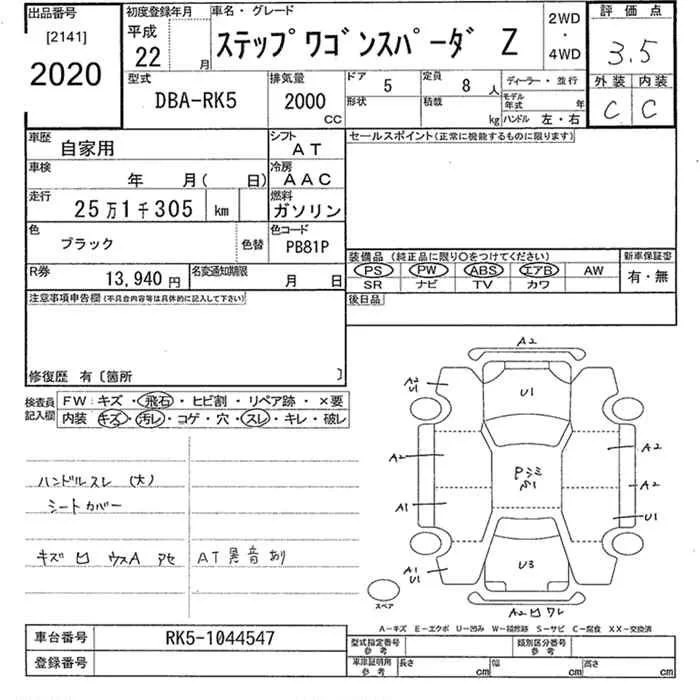 出品番号
[2141]
2020
初度登録年月
平成
22 月
車名・グレード
ステップワゴンスパーダ Z
2WD
・
4WD
評価点
3.5
外装 内装
C C
型式
DBA-RK5
排気量
2000
CC
ドア
5
定員
8 人
形状
積載
kg
ディーラー・並行
モデル年式 年
ハンドル 左・右
車歴
自家用
シフト
AT
セールスポイント(正常に機能するものに限ります)
車検
年 月( 日)
冷房
AAC
走行
25万1千305 km
燃料
ガソリン
色
ブラック
色替
色コード
PB81P
装備品 (純正品に限り〇をつけてください)
新車保証書
PS PW ABS エアB AW
SR ナビ TV カワ
有・無
R券
13,940 円
名変通知期限
月 日
後日品
注意事項申告欄 (不具合内容等は具体的に記入して下さい)
修復歴 有〔箇所 〕
検査員
記入欄
FW: キズ・飛石・ヒビ割・リペア跡・×要
内装 キズ・汚レ・コゲ・穴・スレ・キレ・破レ
ハンドルスレ (大)
シートカバー
キズ 凹 ウスA アセ
AT異音あり
A2
A2
U1
U1
A2
A2
Pシミ
A2
A1
U1
A1
U1
U3
スペア
A2 凹 ワレ
A-キズ E-エクボ U-凹み W-補修跡 S-サビ C-腐食 XX-交換済
車台番号
RK5-1044547
登録番号
型式指定番号
参考
類別区分番号
参考
車庫証明用
参考
長さ cm
幅 cm
高さ cm